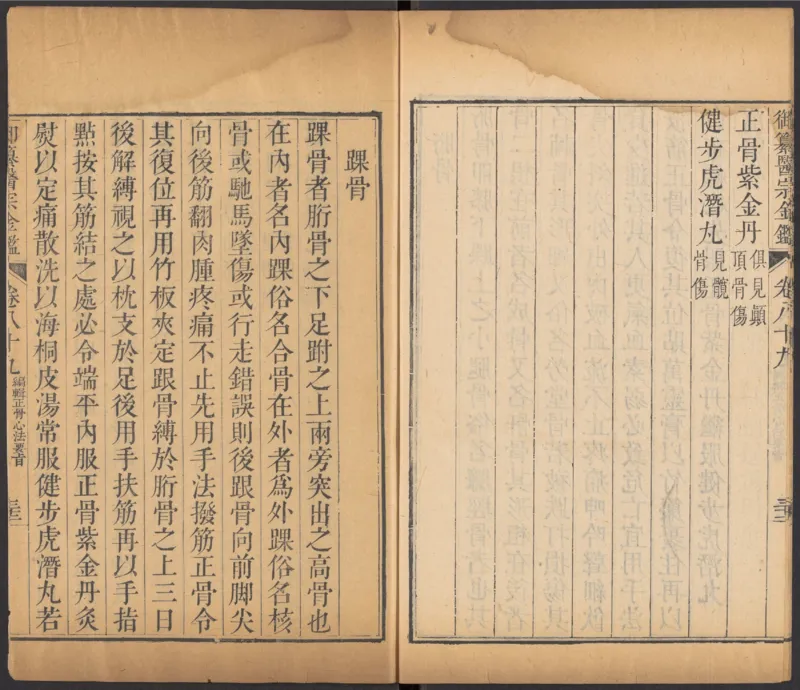 御纂醫宗金鑑
卷八十九
正骨紫金丹 俱見顛頂骨傷
健步虎潛丸 見髖骨傷
踝骨
踝骨者胻骨之下足跗之上兩旁突出之高骨也
在內者名內踝俗名合骨在外者為外踝俗名核
骨或馳馬墜傷或行走錯誤則後跟骨向前脚尖
向後筋翻肉腫疼痛不止先用手法撥筋正骨令
其復位再用竹板夾定跟骨縛於胻骨之上三日
後解縛視之以枕支於足後用手扶筋再以手指
點按其筋結之處必令端平內服正骨紫金丹灸
熨以定痛散洗以海桐皮湯常服健步虎潛丸若
御纂醫宗金鑑
卷八十九
編輯正骨心法要旨